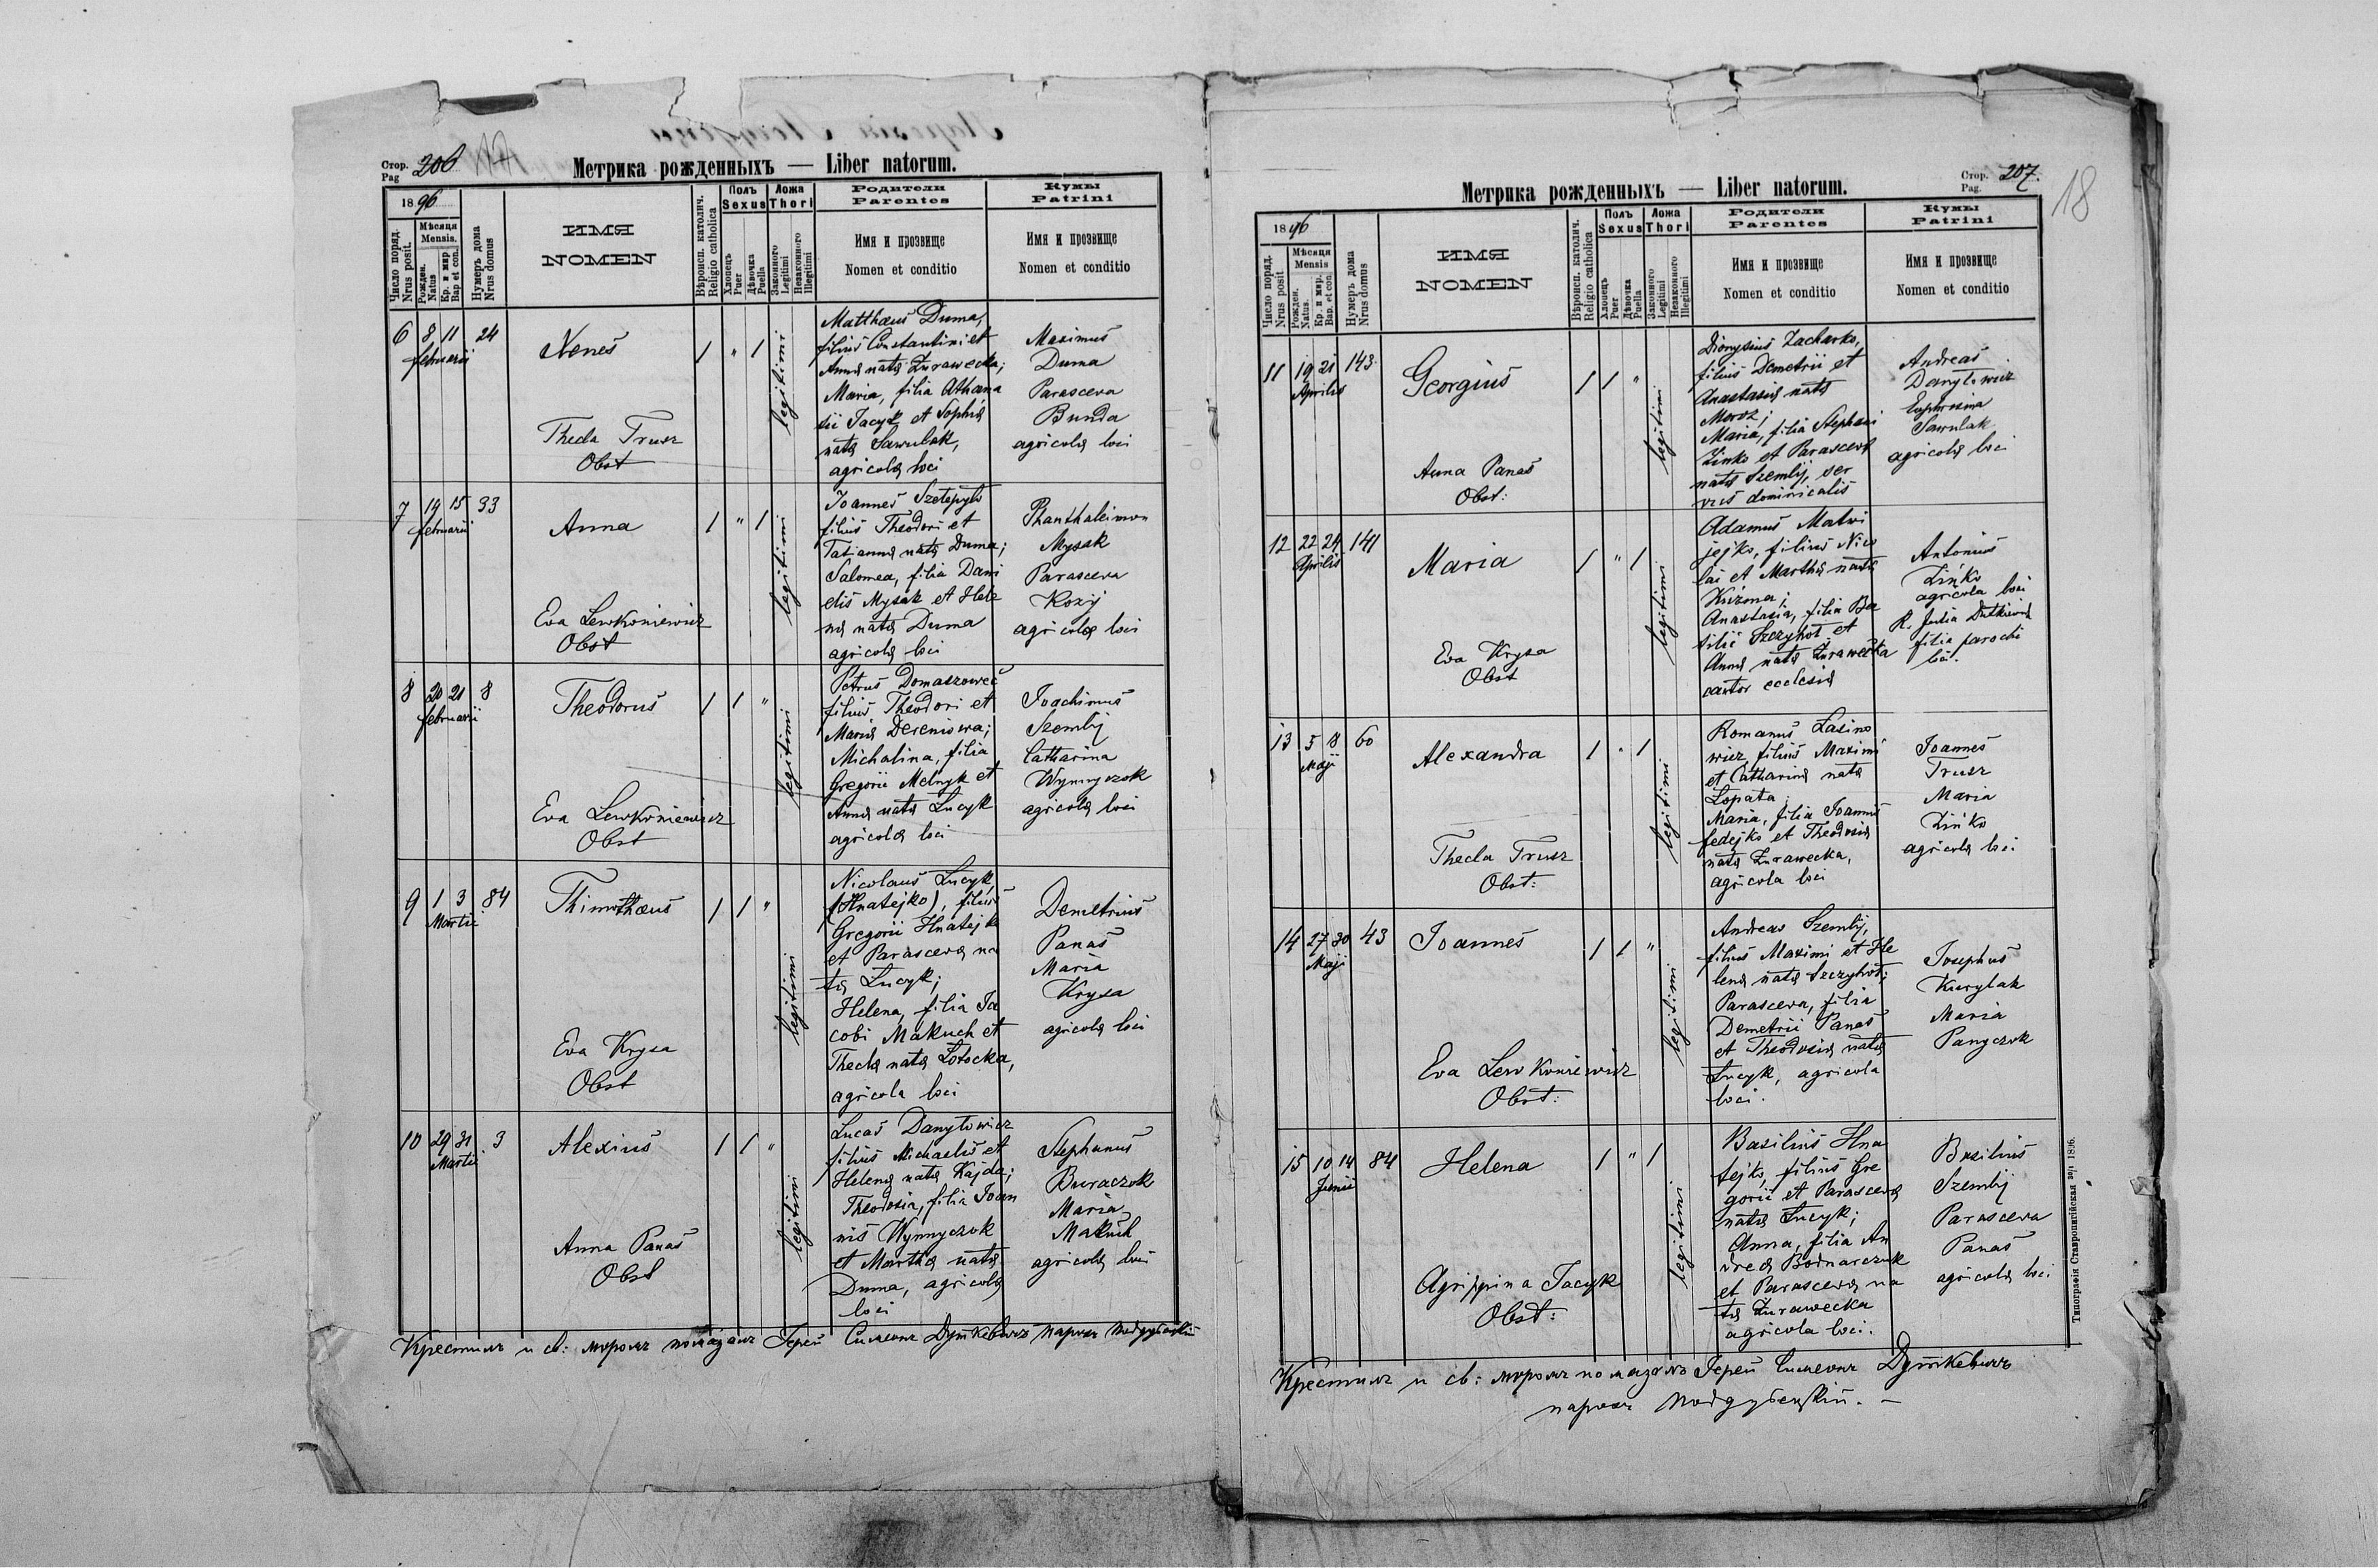 Стор. Pag 206
Метрика рожденныхъ — Liber natorum.
1896
Число поряд. Nrus posit.
Мѣсяця Mensis.
Рожден. Natus
Кр. и мѵр Bap et con.
Нумеръ дома Nrus domus
ИМЯ
NOMEN
Вѣроисп. католич. Religio catholica
Полъ Sexus
Хлопецъ Puer
Дѣвочка Puella
Ложа Thori
Законного Legitimi
Незаконного Illegitimi
Родители
Parentes
Имя и прозвище
Nomen et conditio
Кумы
Patrini
Имя и прозвище
Nomen et conditio
6 8 11 24
februarii
Nenes
1 " 1
legitimi
Matthæus Duma,
filius Constantini et
Anna nata Żurawecka;
Maria, filia Athana
sii Jacyk et Sophia
nata Sawulak,
agricola loci
Maximus
Duma
Parasceva
Bunda
agricola loci
Thecla Trusz
Obst
7 14 15 33
februarii
Anna
1 " 1
legitimi
Joannes Szelepyło
filius Theodori et
Tatianna nata Duma;
Salomea, filia Dani
elis Mysak et Hele
na nata Duma
agricola loci
Phanthaleimon
Mysak
Parasceva
Kozij
agricola loci
Eva Lewkoniewicz
Obst
8 20 21 8
februarii
Theodorus
1 1 "
legitimi
Petrus Domaszowec
filius Theodori et
Maria Dereniowa;
Michalina, filia
Gregorii Melnyk et
Anna nata Łucyk
agricola loci
Joachimus
Szemlij
Catharina
Wynnyczok
agricola loci
Eva Lewkoniewicz
Obst
9 1 3 84
Martii
Thimothæus
1 1 "
legitimi
Nicolaus Łucyk
(Hnatejko), filius
Gregorii Hnatejko
et Parasceva na
ta Łucyk;
Helena, filia Ja
cobi Makuch et
Thecla nata Łotocka,
agricola loci
Demetrius
Panas
Maria
Krysa
agricola loci
Eva Krysa
Obst
10 29 31 3
Martii
Alexius
1 1 "
legitimi
Lucas Danyłowicz
filius Michaelis et
Helena nata Kajda;
Theodosia, filia Joan
nis Wynnyczok
et Martha nata
Duma, agricola
loci
Stephanus
Buraczok
Maria
Makuch
agricola loci
Anna Panas
Obst
Крестилъ и св: мѵромъ помазалъ Іерей Симеонъ Дуткевичъ парохъ
Стор. Pag. 207.
18
Метрика рожденныхъ — Liber natorum.
1896
Число поряд. Nrus posit
Мѣсяця Mensis
Рожден. Natus.
Кр. и мѵр. Bap. et con.
Нумеръ дома Nrus domus
ИМЯ
NOMEN
Вѣроисп. католич. Religio catholica
Полъ Sexus
Хлопецъ Puer
Дѣвочка Puella
Ложа Thori
Законного Legitimi
Незаконного Illegitimi
Родители
Parentes
Имя и прозвище
Nomen et conditio
Кумы
Patrini
Имя и прозвище
Nomen et conditio
11 19 21 143
Aprilis
Georgius
1 1 "
legitimi
Dionysius Zacharko,
filius Demetrii et
Anastasia nata
Moroz;
Maria, filia Stephani
Zinko et Parasceva
nata Szemlij, ser
vus dominicalis
Andreas
Danyłowicz
Euphrosina
Sawulak
agricola loci
Anna Panas
Obst:
12 22 24 141
Aprilis
Maria
1 " 1
legitimi
Adamus Matwi
jejko, filius Nico
lai et Martha nata
Kuzma;
Anastasia, filia Ba
silii Szczyhoł et
Anna nata Żurawecka
cantor ecclesia
Antonius
Zińko
agricola loci
R. Julia Dutkiewicz
filia parochi
loci.
Eva Krysa
Obst
13 5 8 60
Maji
Alexandra
1 " 1
legitimi
Romanus Łasino
wicz, filius Maximi
et Catharina nata
Łopata
Maria, filia Joannis
Fedejko et Theodosia
nata Żurawecka,
agricola loci
Joannes
Trusz
Maria
Zińko
agricola loci
Thecla Trusz
Obst:
14 27 30 43
Maji
Joannes
1 1 "
legitimi
Andreas Szemlij,
filius Maximi et He
lena nata Szczyhoł;
Parasceva, filia
Demetrii Panas
et Theodosia nata
Łucyk, agricola
loci.
Josephus
Kurylak
Maria
Panyczok
Eva Lewkoniewicz
Obst:
15 10 14 84
Junii
Helena
1 " 1
legitimi
Basilius Hna
tejko, filius Gre
gorii et Parasceva
nata Łucyk;
Anna, filia An
drea Bodnarczuk
et Parasceva na
ta Żurawecka
agricola loci.
Basilius
Szemlij
Parasceva
Panas
agricola loci
Agrippina Jacyk
Obst:
Крестилъ и св: мѵромъ помазалъ Іерей Симеонъ Дуткевичъ
парохъ
Типографія Ставропигійская 1896.